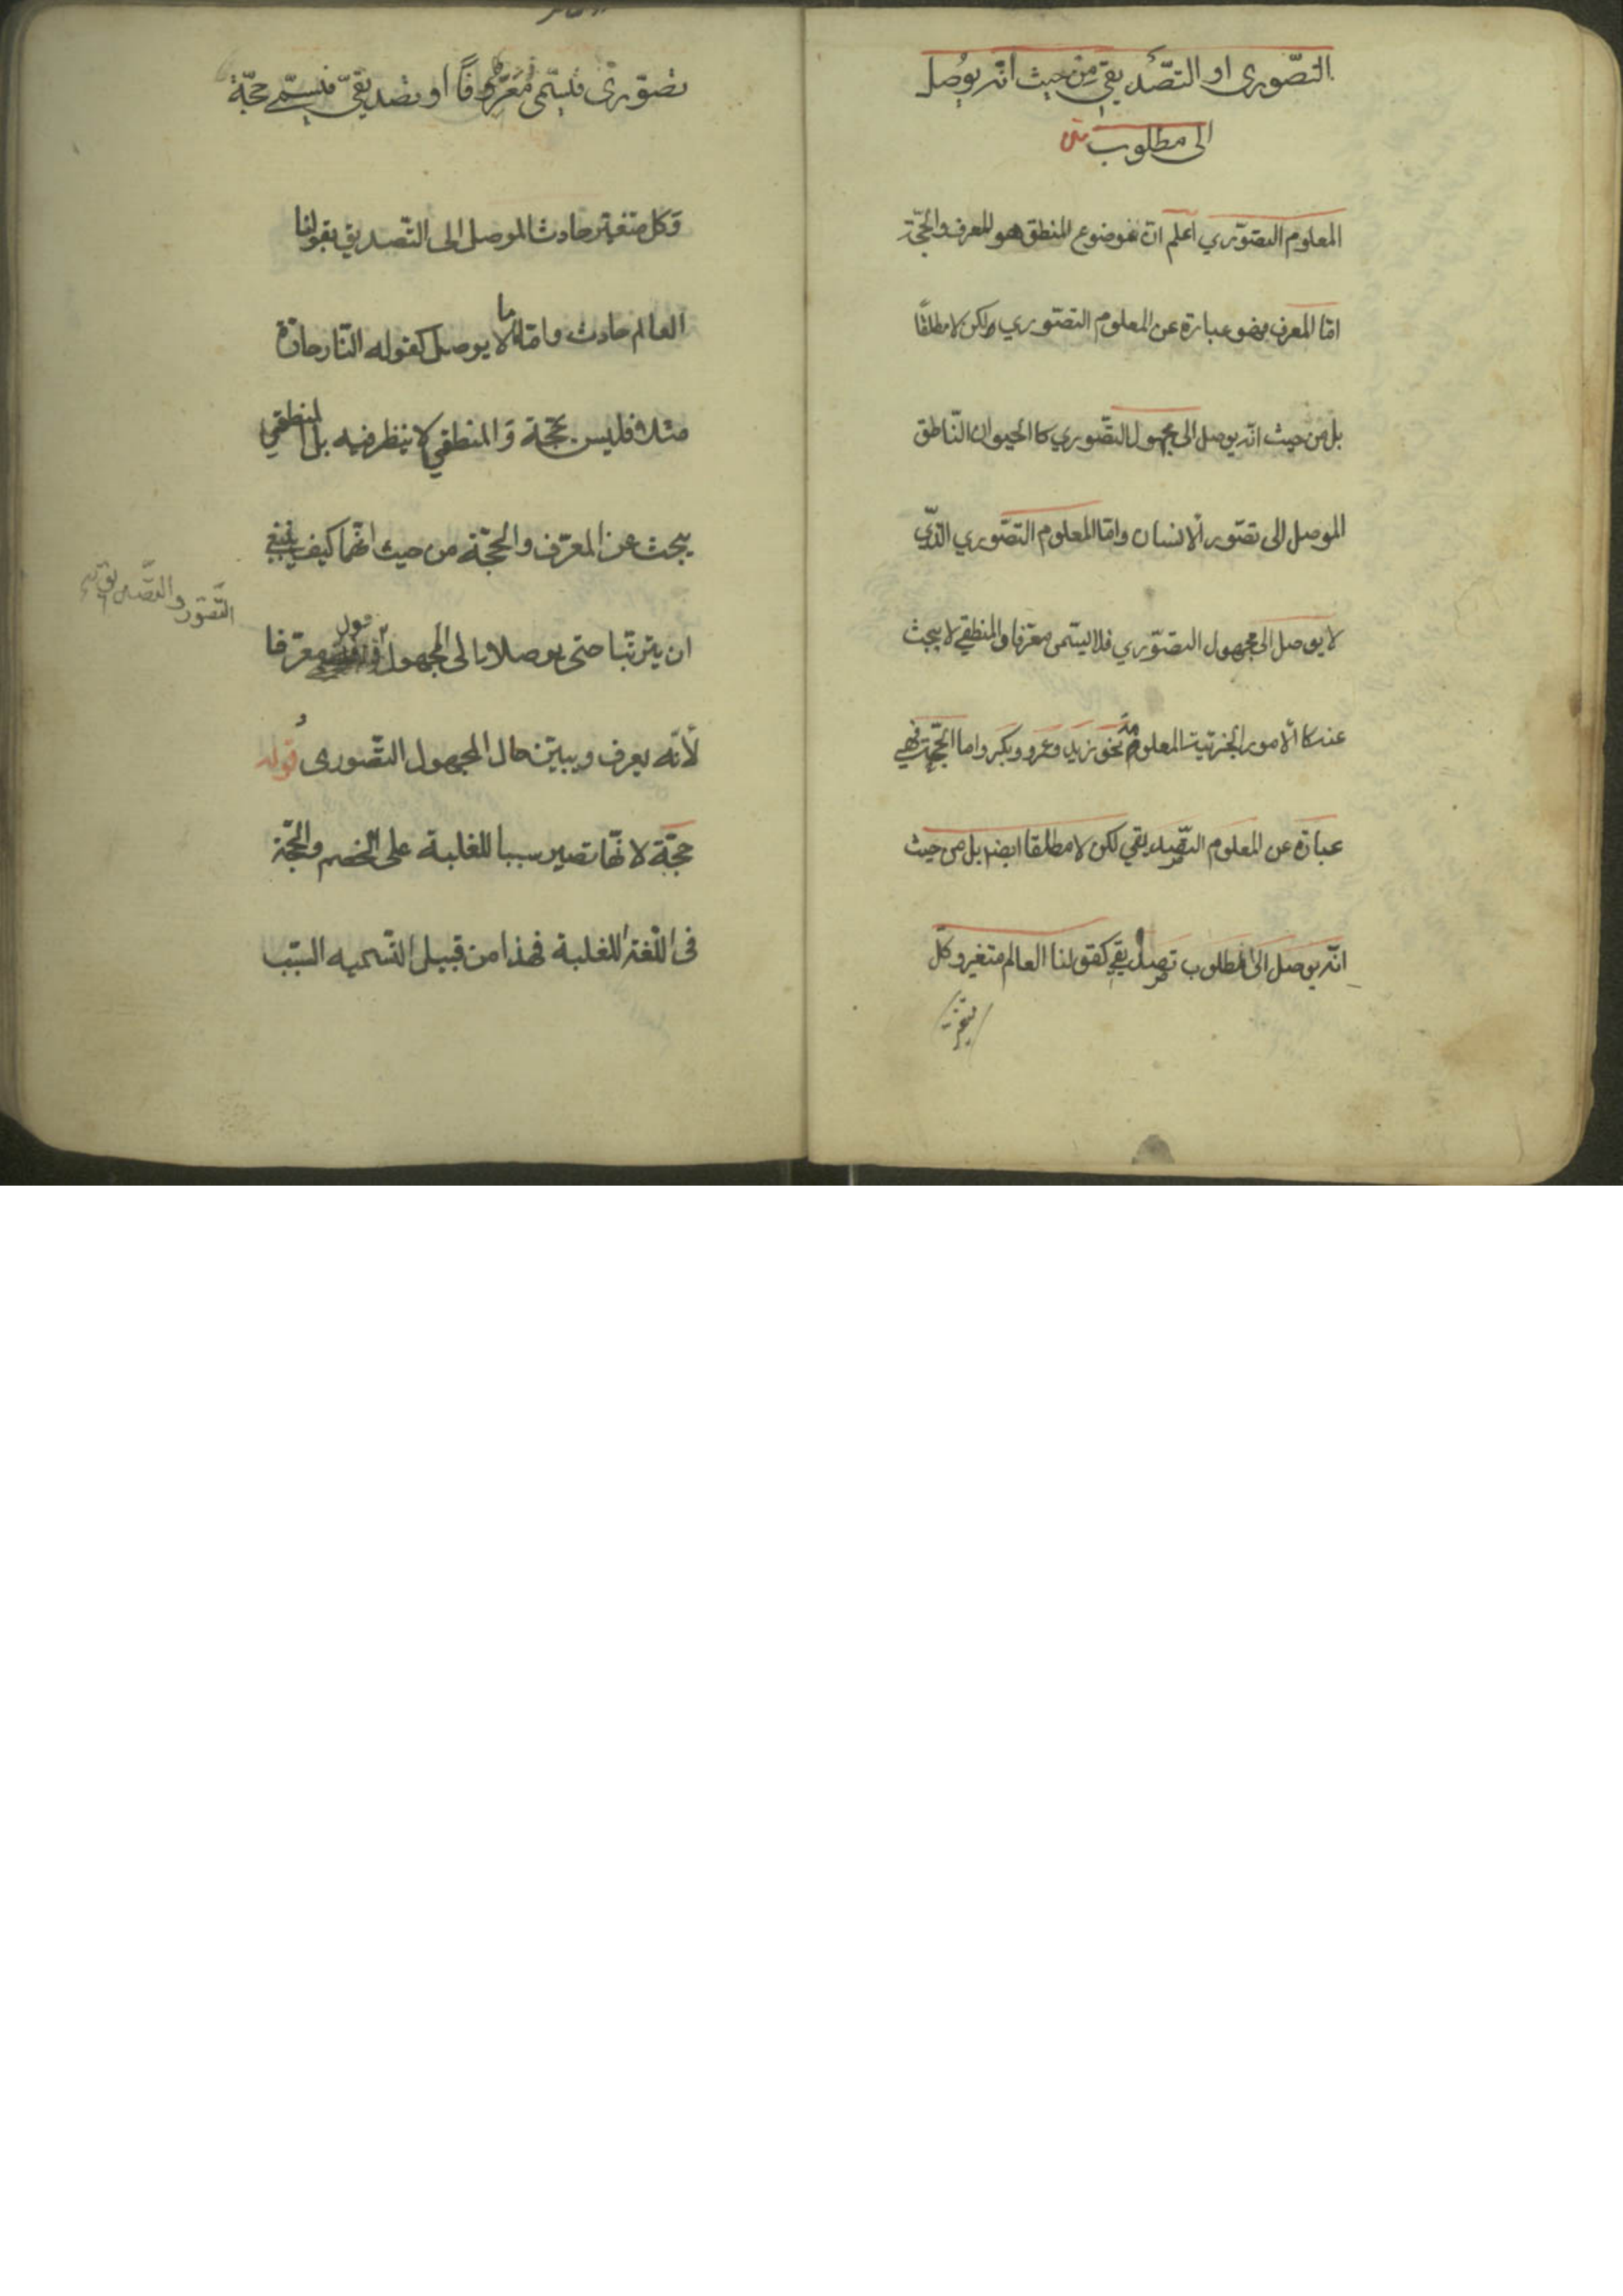 التصّوری او التصّدیقی من حیث انّه یوُصل
الی مطلوب متن
المعلوم التصوّري اعلم انّ موضوع المنطق هو المعرف والحجّة
امّا المعرف فهو عبارة عن المعلوم التصوّري ولكن لا مطلقاً
بل من حیث انّه یوصل الی مجهول التصّوري كا الحیوان النّاطق
الموصل الی تصّور ألانسان وامّا المعلوم التصّوري الذّي
لا یوصل الی مجهول التصوّري فلا لیسّمی معّرفا والمنطقي لا یبحث
عنه كا ألامور الجزئیة المعلومة نحو زید وعمرو وبكر واما الحجّة فهي
عبارة عن المعلوم التصّدیقي لكن لا مطلقا ایضا بل من حیث
انّه یوصل الی مطلوب تصدیقي كقولنا العالم متغیر وكلّ
متغیّر
تصوّری فیسّمی مُعَرّفاً او تصدیقیّ فیسمّی حجّة
وكل متغیّر حادث الموصل الی التّصدیق بقولنا
العالم حادث وامّا ما لا یوصل كقوله النّار حارّة
مثلا فلیس بحّجة وَ المنطقي لا ینظر فیه بل المنطقي
یبحث عن المعرّف والحجّة من حیث انّهما كیف ینبغي
التّصّور والتصّدیقي
ان یترتّبا حتی یوصلا با لی المجهول قول معرّفا
لأنّه یعرف ویبیّن حال المجهول التصّوری قوله
حجّة لا نّها تصیر سببا للغلبة علی الخصم والحجّة
فی اللّغة الغلبة فهذا من قبیل التّسمیه السّبب